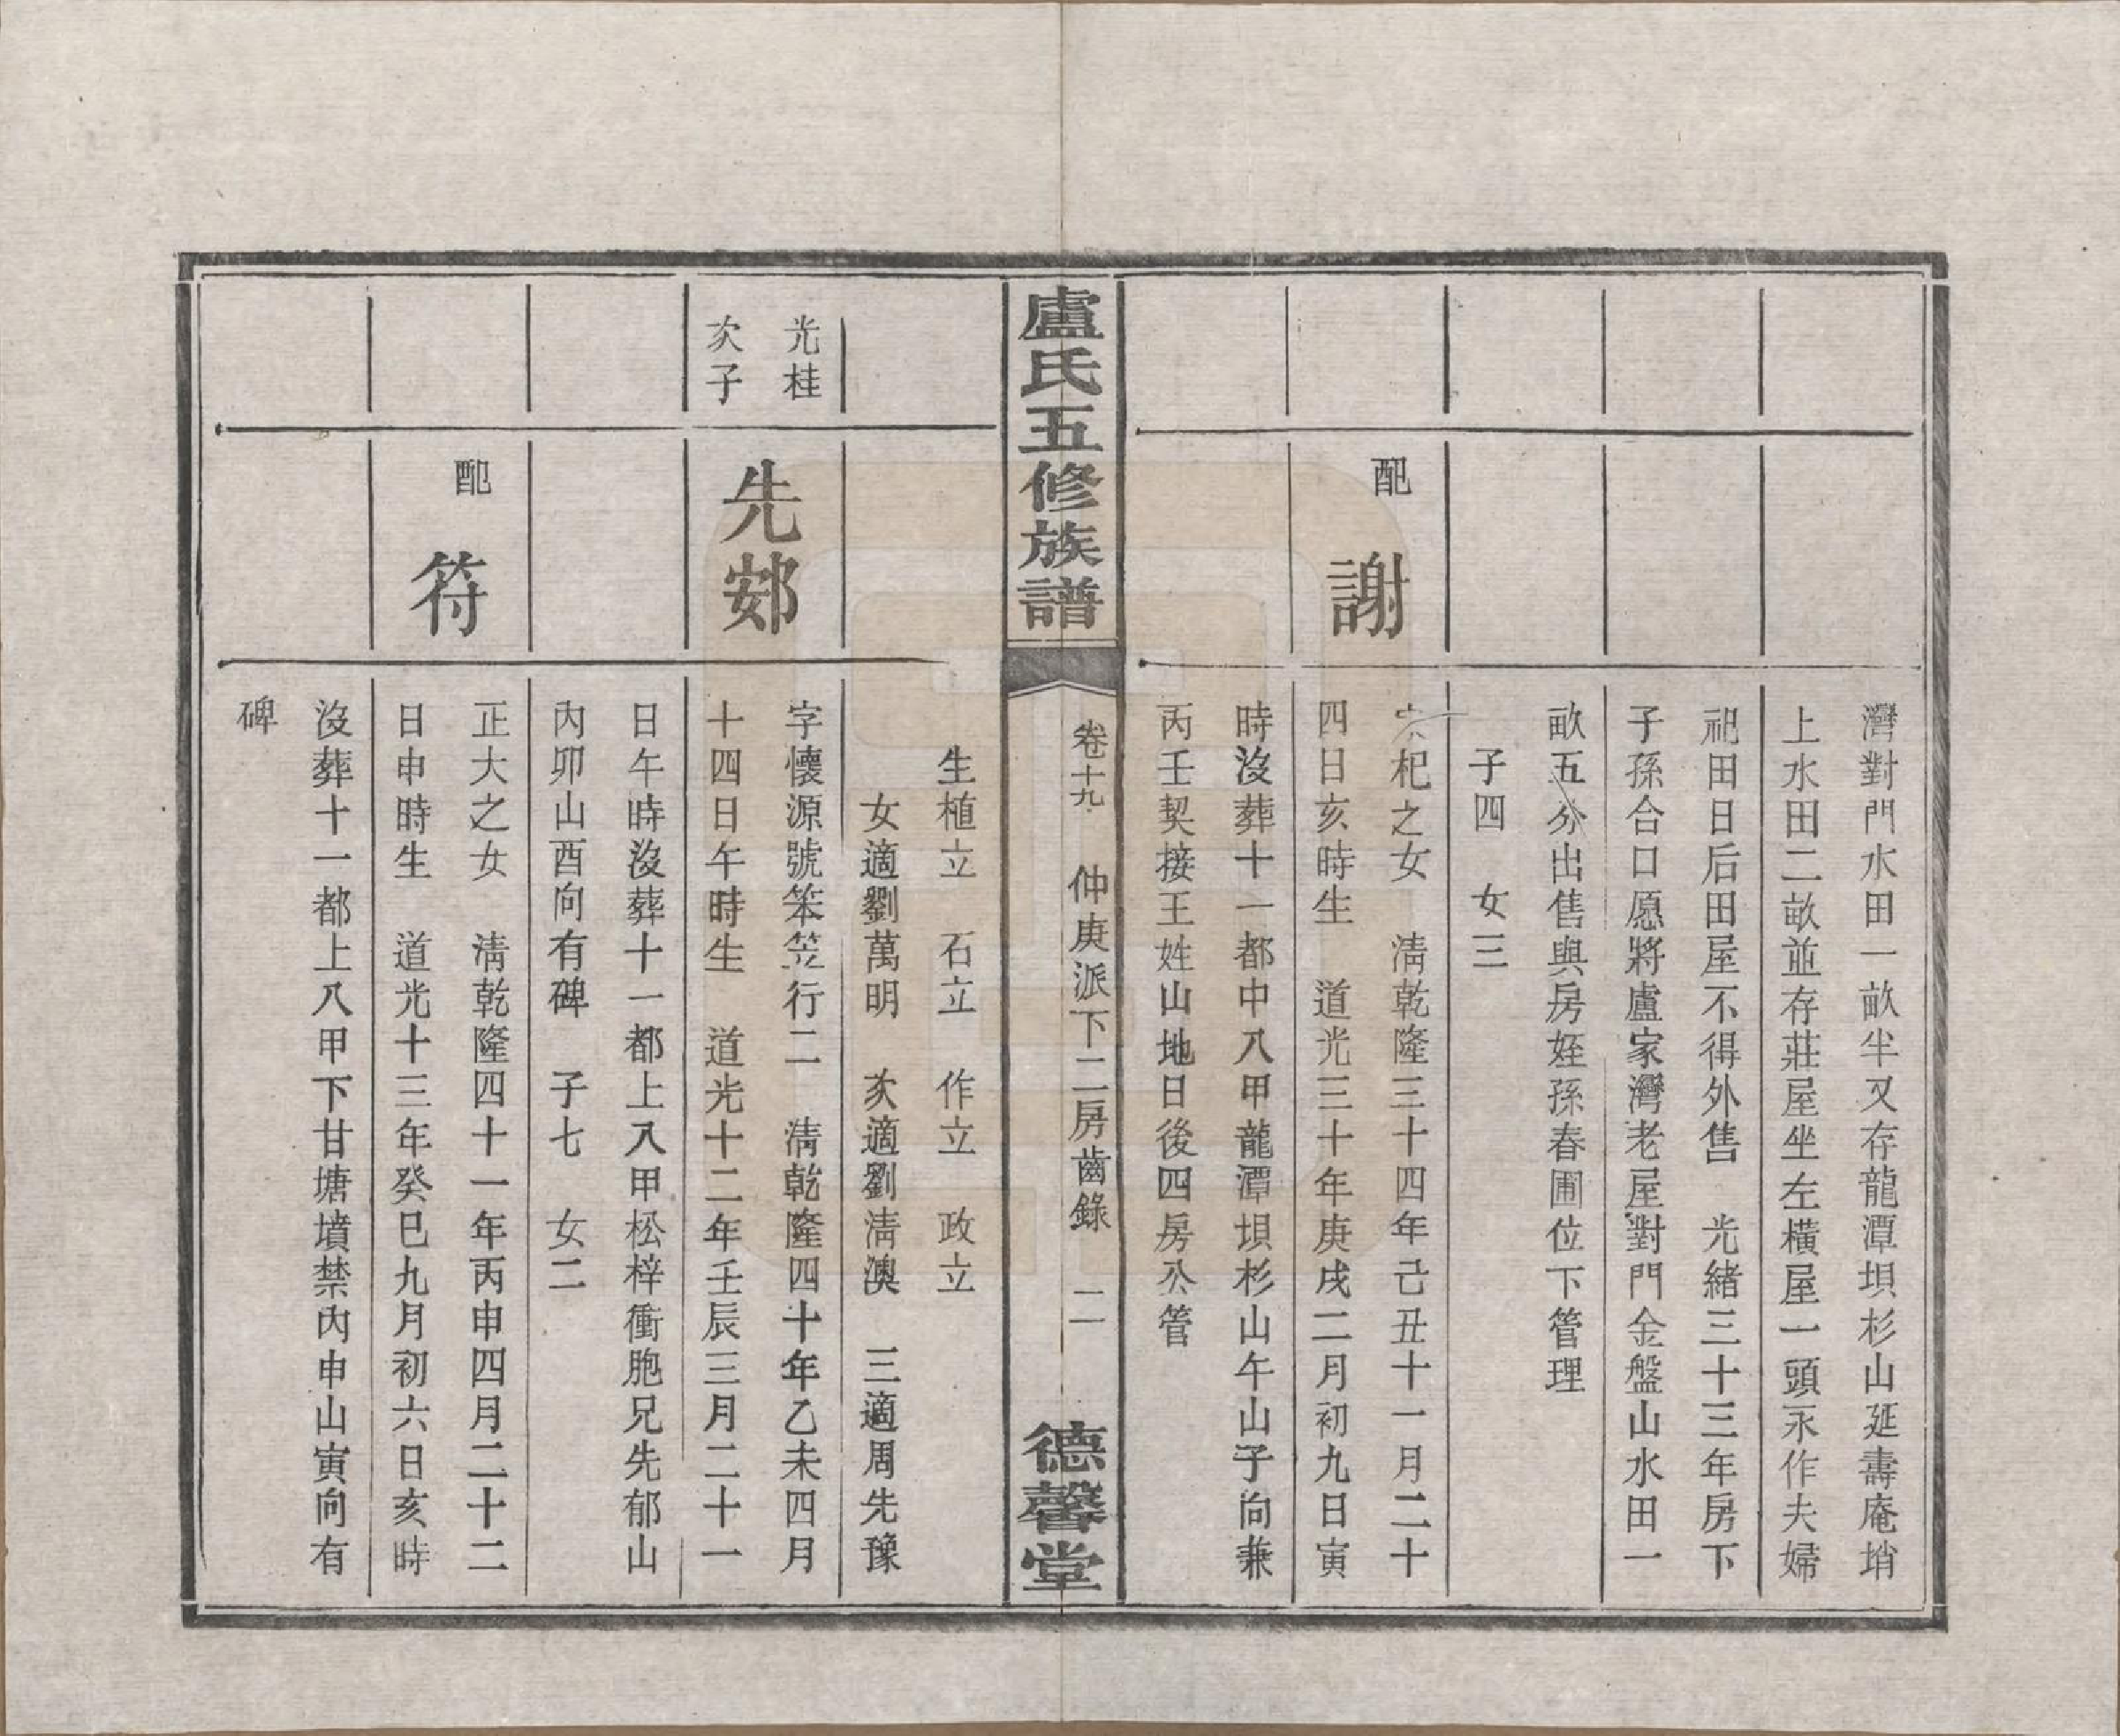 灣對門水田一畝半又存龍潭垻杉山延壽庵塝
上水田二畝並存莊屋坐左橫屋一頭永作夫婦
祀田日后田屋不得外售　光緒三十三年房下
子孫合口愿將盧家灣老屋對門金盤山水田一
畝五分出售與房姪孫春圃位下管理
子四　女三
配
謝
杞之女　淸乾隆三十四年己丑十一月二十
四日亥時生　道光三十年庚戌二月初九日寅
時沒葬十一都中八甲龍潭垻杉山午山子向兼
丙壬契接王姓山地日後四房公管
盧氏五修族譜
卷十九　仲庚派下二房齒錄　二
德馨堂
生植立　石立　作立　政立
女適劉萬明　次適劉淸澳　三適周先豫
光桂
次子
先䣍
字懷源號笨笠行二　淸乾隆四十年乙未四月
十四日午時生　道光十二年壬辰三月二十一
日午時沒葬十一都上八甲松梓衝胞兄先郁山
內卯山酉向有碑　子七　女二
配
符
正大之女　淸乾隆四十一年丙申四月二十二
日申時生　道光十三年癸巳九月初六日亥時
沒葬十一都上八甲下甘塘墳禁內申山寅向有
碑